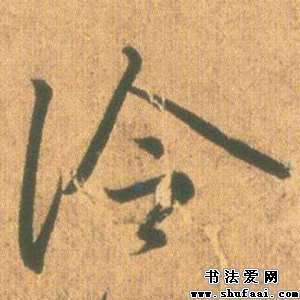 冷
书法爱网
www.shufaai.com